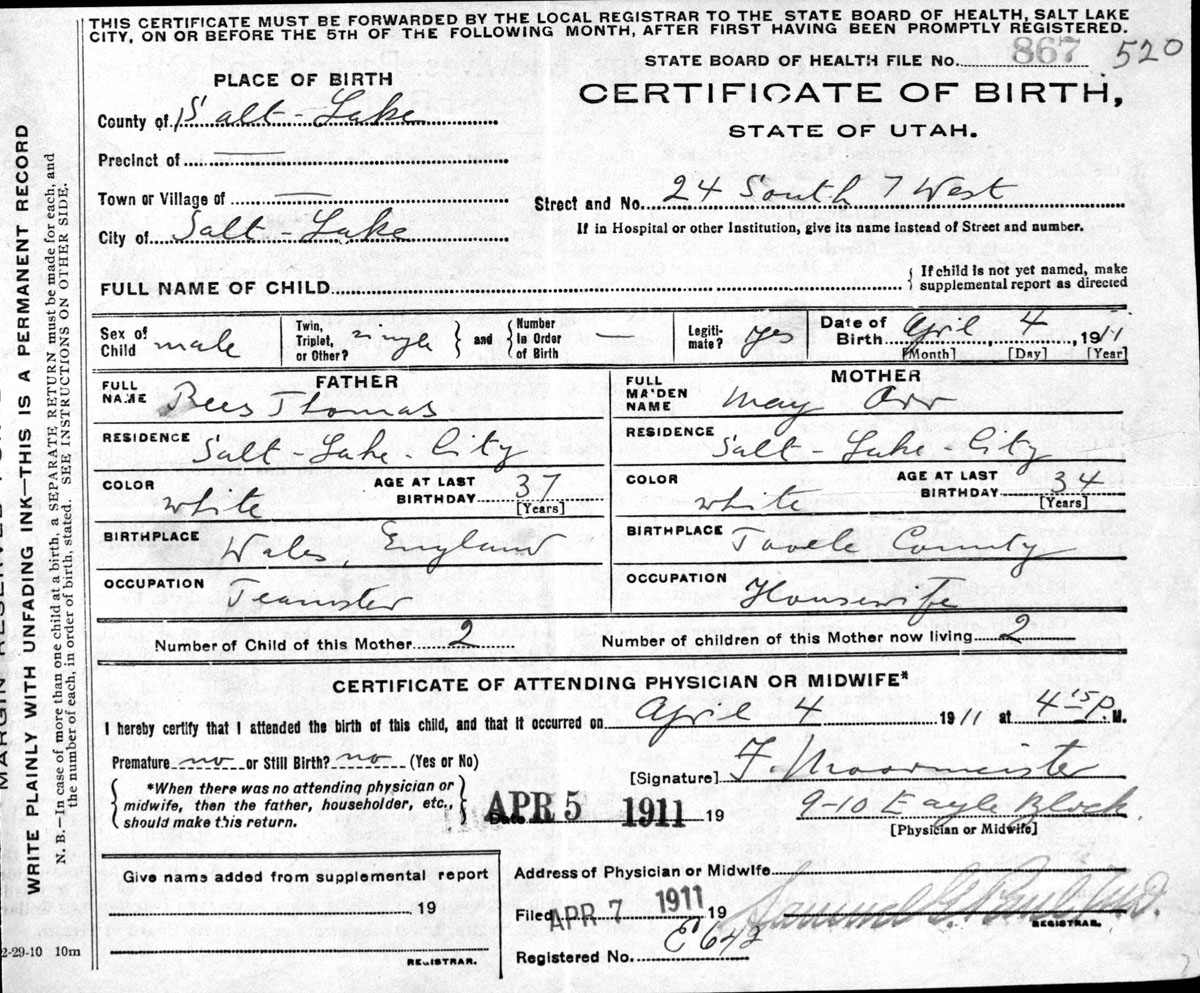 THIS CERTIFICATE MUST BE FORWARDED BY THE LOCAL REGISTRAR TO THE STATE BOARD OF HEALTH, SALT LAKE
CITY, ON OR BEFORE THE 5TH OF THE FOLLOWING MONTH, AFTER FIRST HAVING BEEN PROMPTLY REGISTERED.
STATE BOARD OF HEALTH FILE No. 867 520
PLACE OF BIRTH
CERTIFICATE OF BIRTH,
STATE OF UTAH.
County of Salt-Lake
Precinct of —
Town or Village of —
Street and No. 24 South 7 West
City of Salt-Lake
If in Hospital or other Institution, give its name instead of Street and number.
FULL NAME OF CHILD
If child is not yet named, make
supplemental report as directed
Sex of Child male
Twin, Triplet, or Other? single and Number In Order of Birth —
Legitimate? yes
Date of Birth April 4, 1911
[Month] [Day] [Year]
FATHER
MOTHER
FULL NAME Rees Thomas
FULL MAIDEN NAME May Orr
RESIDENCE Salt-Lake-City
RESIDENCE Salt-Lake-City
COLOR white AGE AT LAST BIRTHDAY 37 [Years]
COLOR white AGE AT LAST BIRTHDAY 34 [Years]
BIRTHPLACE Wales, England
BIRTHPLACE Tooele County
OCCUPATION Teamster
OCCUPATION Housewife
Number of Child of this Mother 2 Number of children of this Mother now living 2
CERTIFICATE OF ATTENDING PHYSICIAN OR MIDWIFE*
I hereby certify that I attended the birth of this child, and that it occurred on April 4 1911 at 4 15 P. M.
Premature no or Still Birth? no (Yes or No)
[Signature] F. Moormeister
*When there was no attending physician or
midwife, then the father, householder, etc.,
should make this return.
Date APR 5 1911 19
9-10 Eagle Block
[Physician or Midwife]
Give name added from supplemental report
19
REGISTRAR.
Address of Physician or Midwife
Filed APR 7 1911 19
Samuel G Paul M.D.
REGISTRAR.
Registered No. E 642
2-29-10 10m
WRITE PLAINLY WITH UNFADING INK—THIS IS A PERMANENT RECORD
N. B.—In case of more than one child at a birth, a SEPARATE RETURN must be made for each, and
the number of each, in order of birth, stated. SEE INSTRUCTIONS ON OTHER SIDE.
MARGIN RESERVED